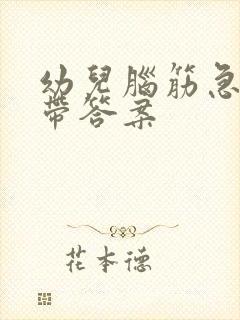 幼兒腦筋急
帶答案
花本德